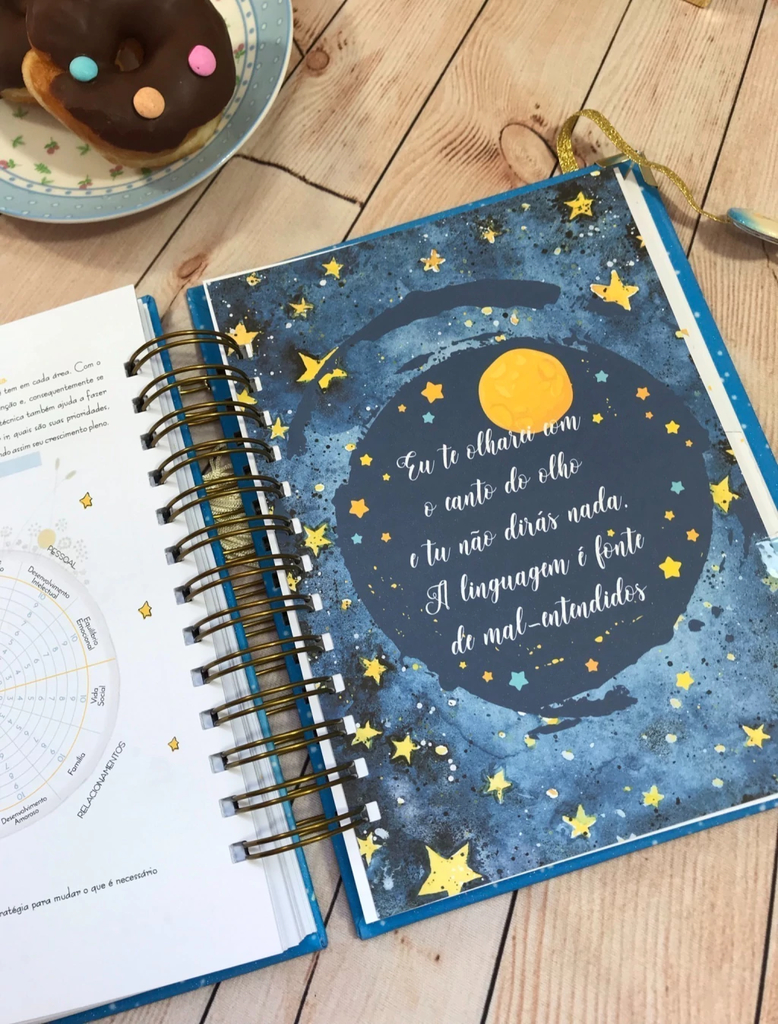 tem em cada área. Com o
nção e, consequentemente se
técnica também ajuda a fazer
in quais são suas prioridades,
ndo assim seu crescimento pleno.
PESSOAL
Desenvolvimento
Intelectual
Equilíbrio
Emocional
Vida
Social
Família
Desenvolvimento
Amoroso
RELACIONAMENTOS
ratégia para mudar o que é necessário
Eu te olharei com
o canto do olho
e tu não dirás nada.
A linguagem é fonte
de mal-entendidos